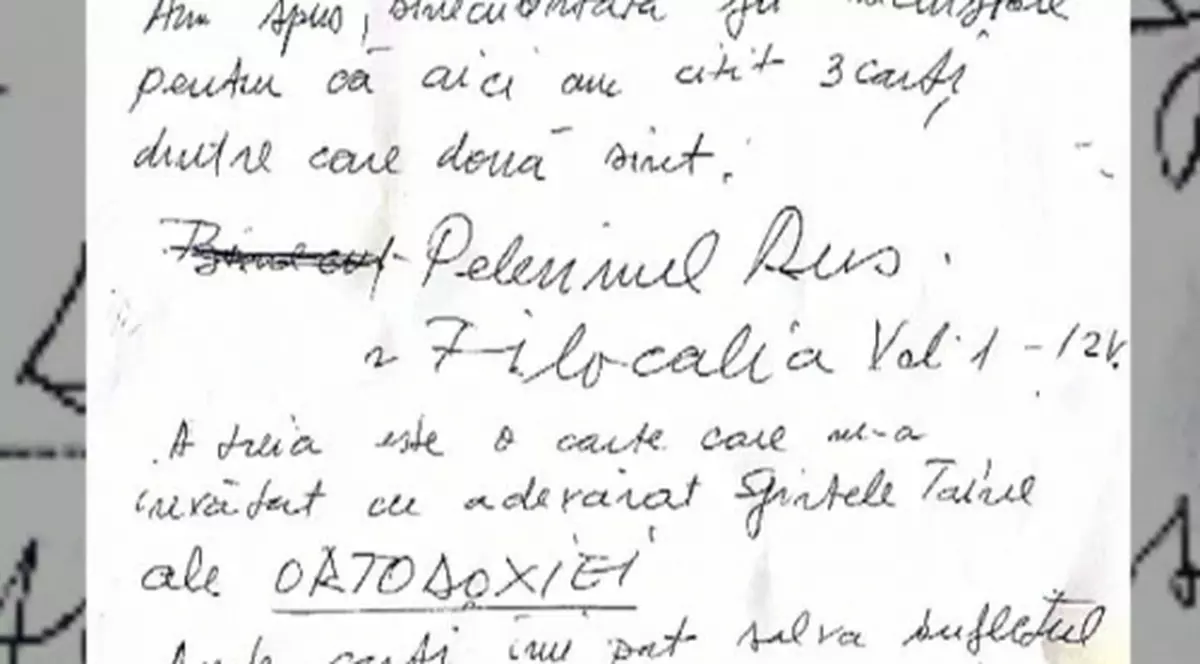 Am spus, binecuvântată fie
pentru că aici am citit 3 cărți
dintre care două sînt.
Pelerinul Rus.
~ Filocalia Vol 1 - 12V.
A treia este o carte care m-a
învățat cu adevărat Sfintele Taine
ale ORTODOXIEI
cărți îmi pot salva sufletul